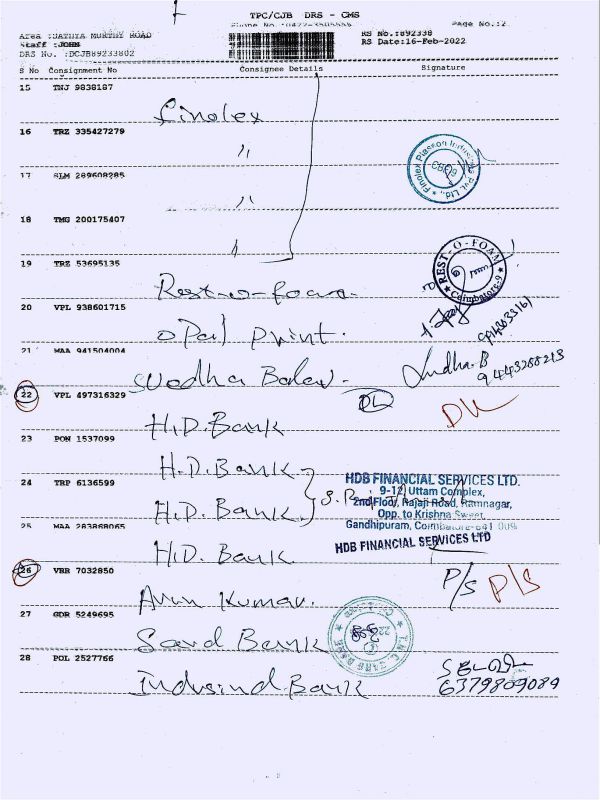 TPC/CJB DRS - CMS
Page No.:2
Area :SATHYA MURTHY ROAD
Staff :JOHN
DRS No. :DCJB89233802
RS No.:892338
RS Date:16-Feb-2022
S No Consignment No Consignee Details Signature
15 TNJ 9838187
Finolex
16 TRZ 335427279
"
Finolex Plasson Industries Pvt. Ltd.
17 SLM 289608285
"
18 TMG 200175407
19 TRZ 53695135
REST-O-FOAM
Coimbatore-9
Rest-o-foam
20 VPL 938601715
Opal print.
21 MAA 941504004
Sudha.B
9443288213
22 VPL 497316329
DL
H.D.Bank
23 PON 1537099
H.D.Bank
24 TRP 6136599
H.D.Bank
HDB FINANCIAL SERVICES LTD.
9-12, Uttam Complex,
2nd Floor, Rajaji Road, Ramnagar,
Opp. to Krishna Sweet,
Gandhipuram, Coimbatore-641 009
25 MAA 283868065
HDB FINANCIAL SERVICES LTD
H.D. Bank
26 VBR 7032850
P/S P/S
Arun Kumar.
27 GDR 5249695
Sard Bank
28 POL 2527766
Indusind Bank
6379809089